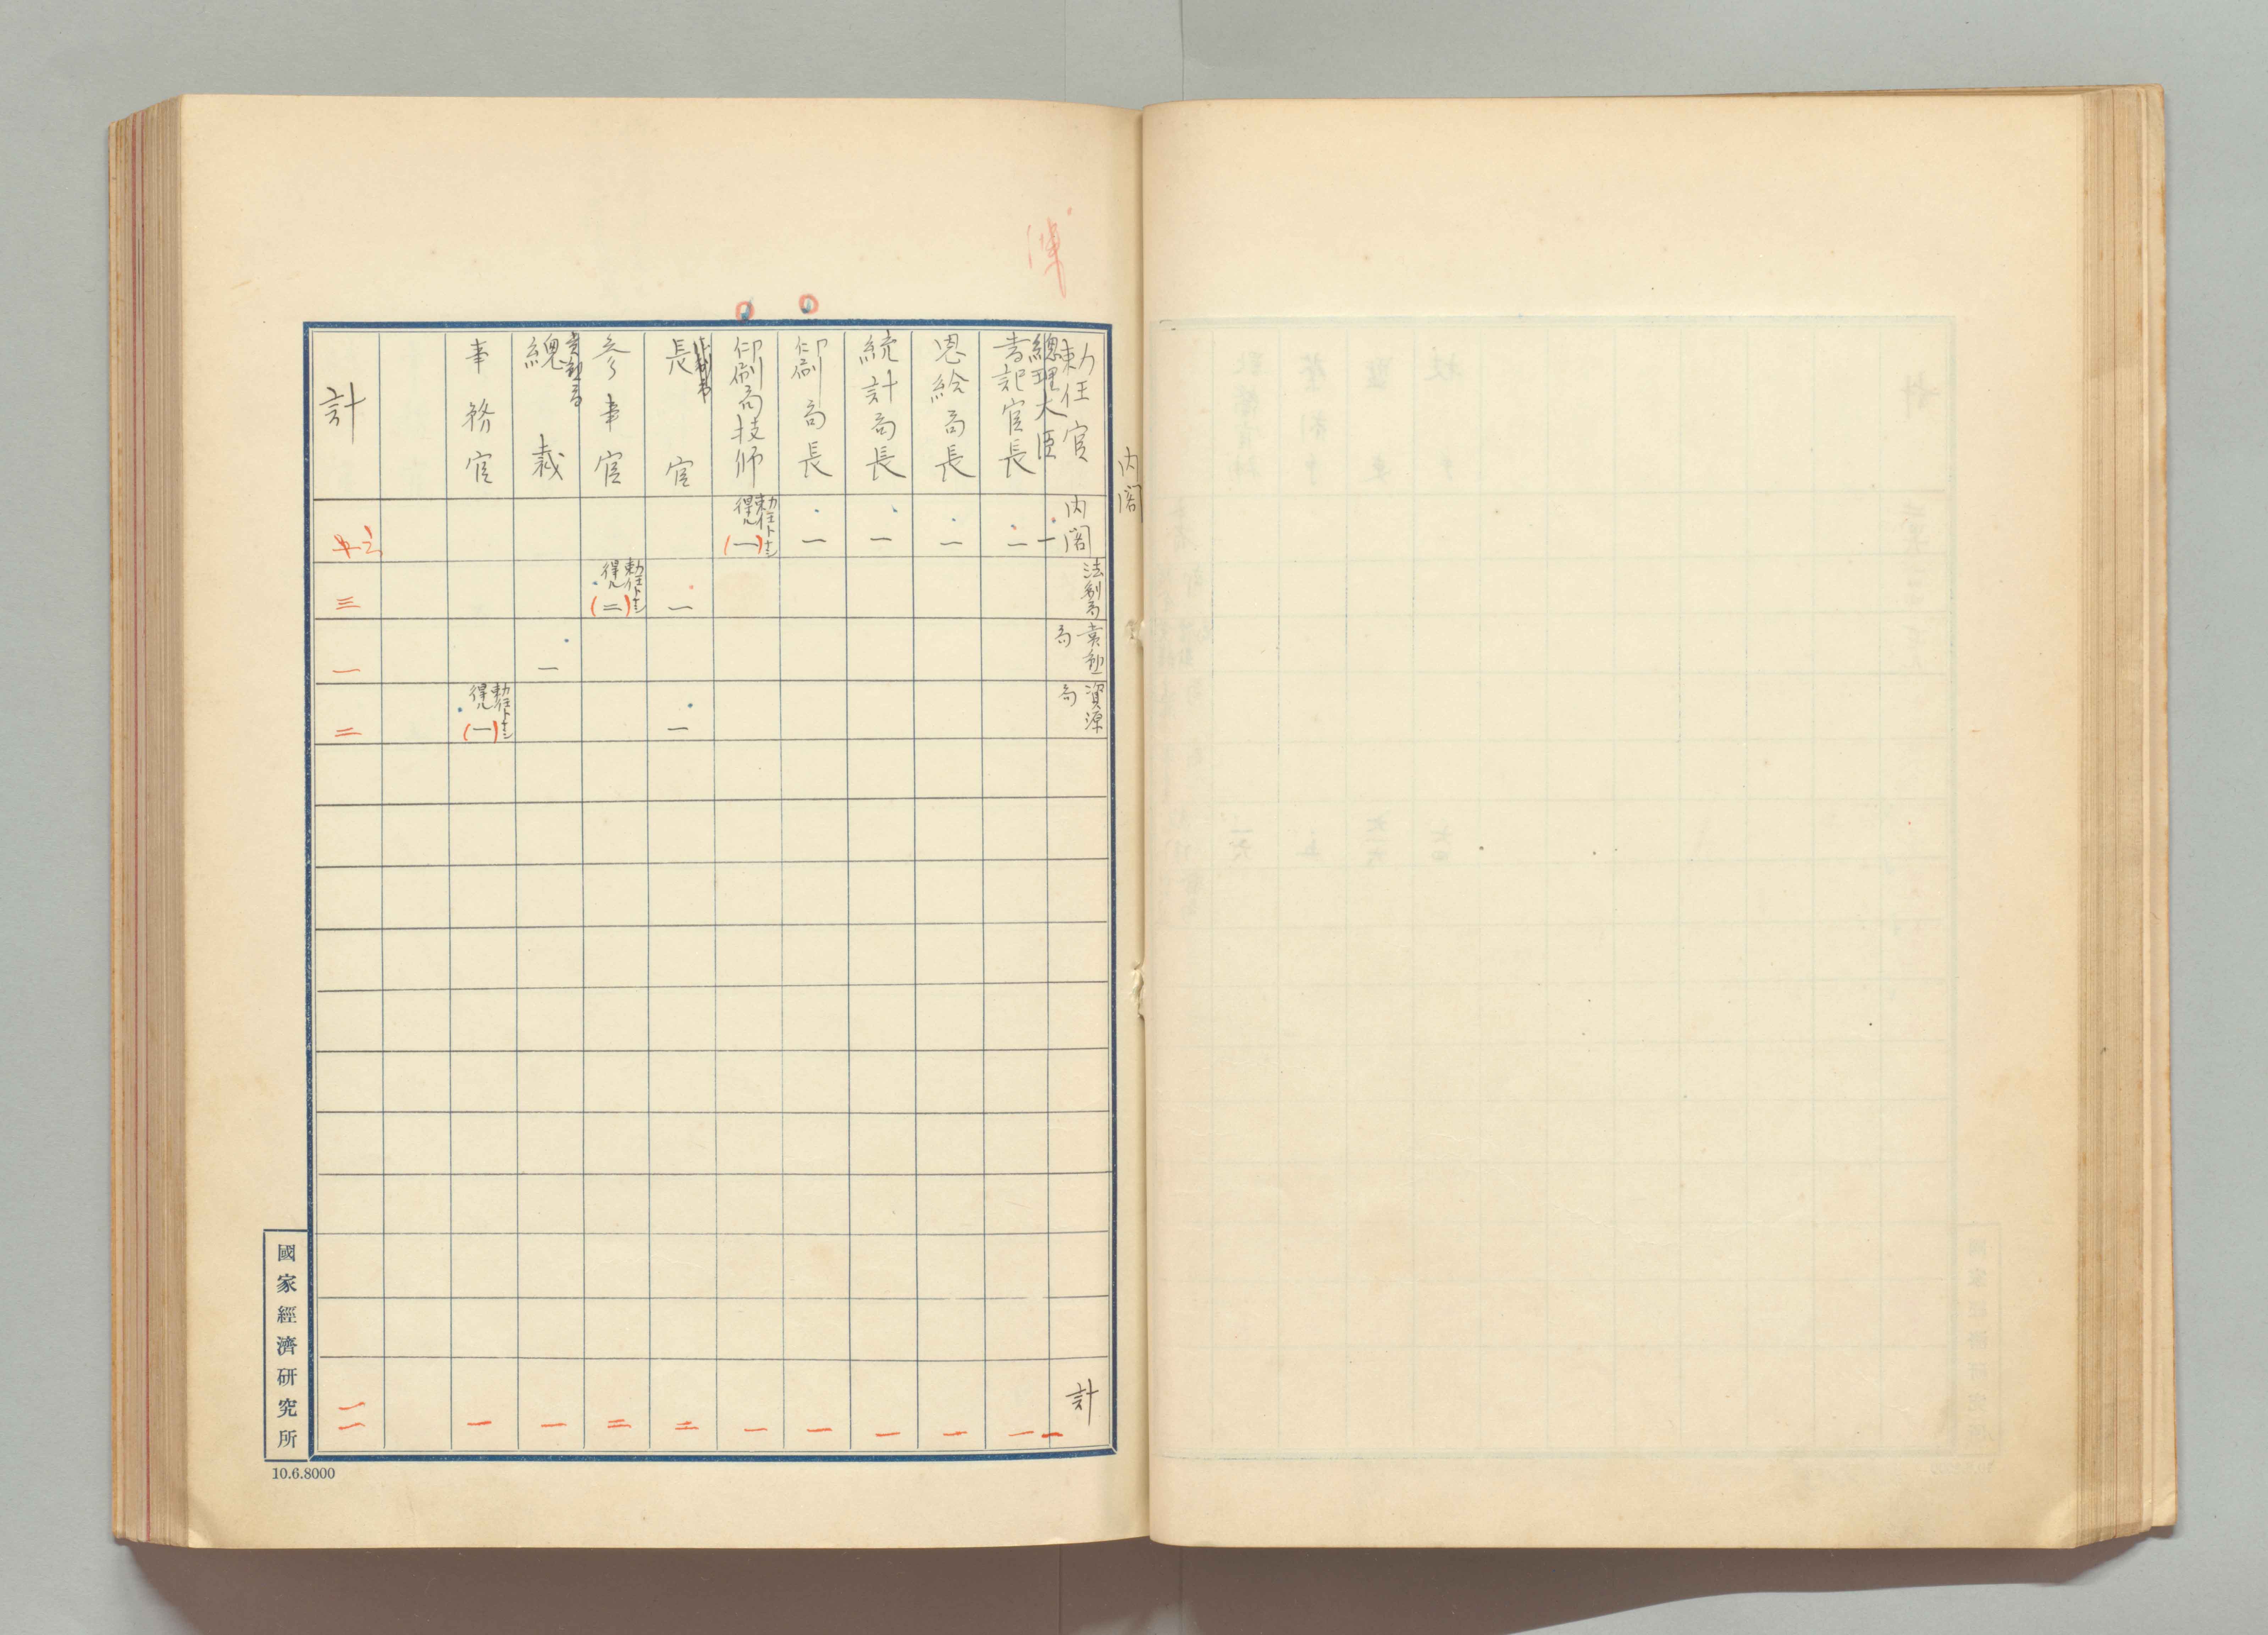 内閣
勅任官
内閣
法制局
賞勲局
資源局
計
總理大臣
一
一
書記官長
一
一
恩給局長
一
一
統計局長
一
一
印刷局長
一
一
印刷局技師
勅任トナシ得ル
(一)
一
長官
一
一
二
参事官
勅任トナシ得ル
(二)
二
賞勲局
總裁
一
一
事務官
勅任トナシ得ル
(一)
一
計
三
一
二
一一
國家經濟研究所
10.6.8000